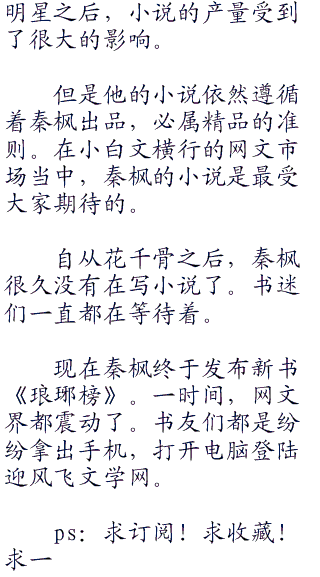 明星之后，小说的产量受到
了很大的影响。
但是他的小说依然遵循
着秦枫出品，必属精品的准
则。在小白文横行的网文市
场当中，秦枫的小说是最受
大家期待的。
自从花千骨之后，秦枫
很久没有在写小说了。书迷
们一直都在等待着。
现在秦枫终于发布新书
《琅琊榜》。一时间，网文
界都震动了。书友们都是纷
纷拿出手机，打开电脑登陆
迎风飞文学网。
ps：求订阅！求收藏！
求一